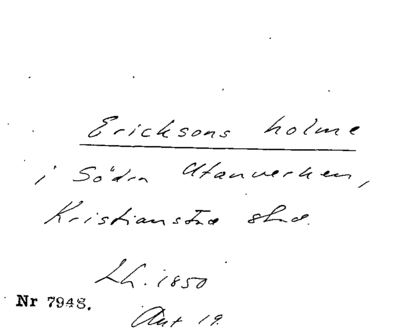 Ericksons holme
i Södra Utanverken,
Kristianstad stad.
Lh. 1850
Nr 7948.
Ant 19.